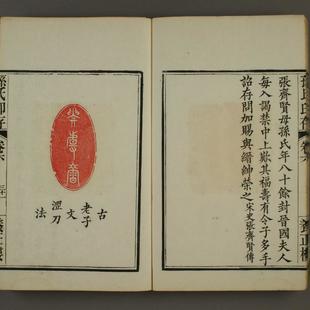 張齊賢母孫氏年八十餘封晉國夫人
每入謁禁中上歎其福壽有令子多手
詔存問加賜與縉紳榮之宋史張齊賢傳
古老子文澀刀法
孫氏印存